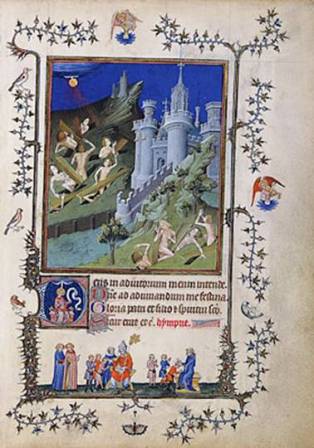 Deus in adiutorium meum intende.
Dñe ad adiuuandum me festina.
Gloria patri et filio et spiritui sco.
Sicut erat et c̃. hympne.